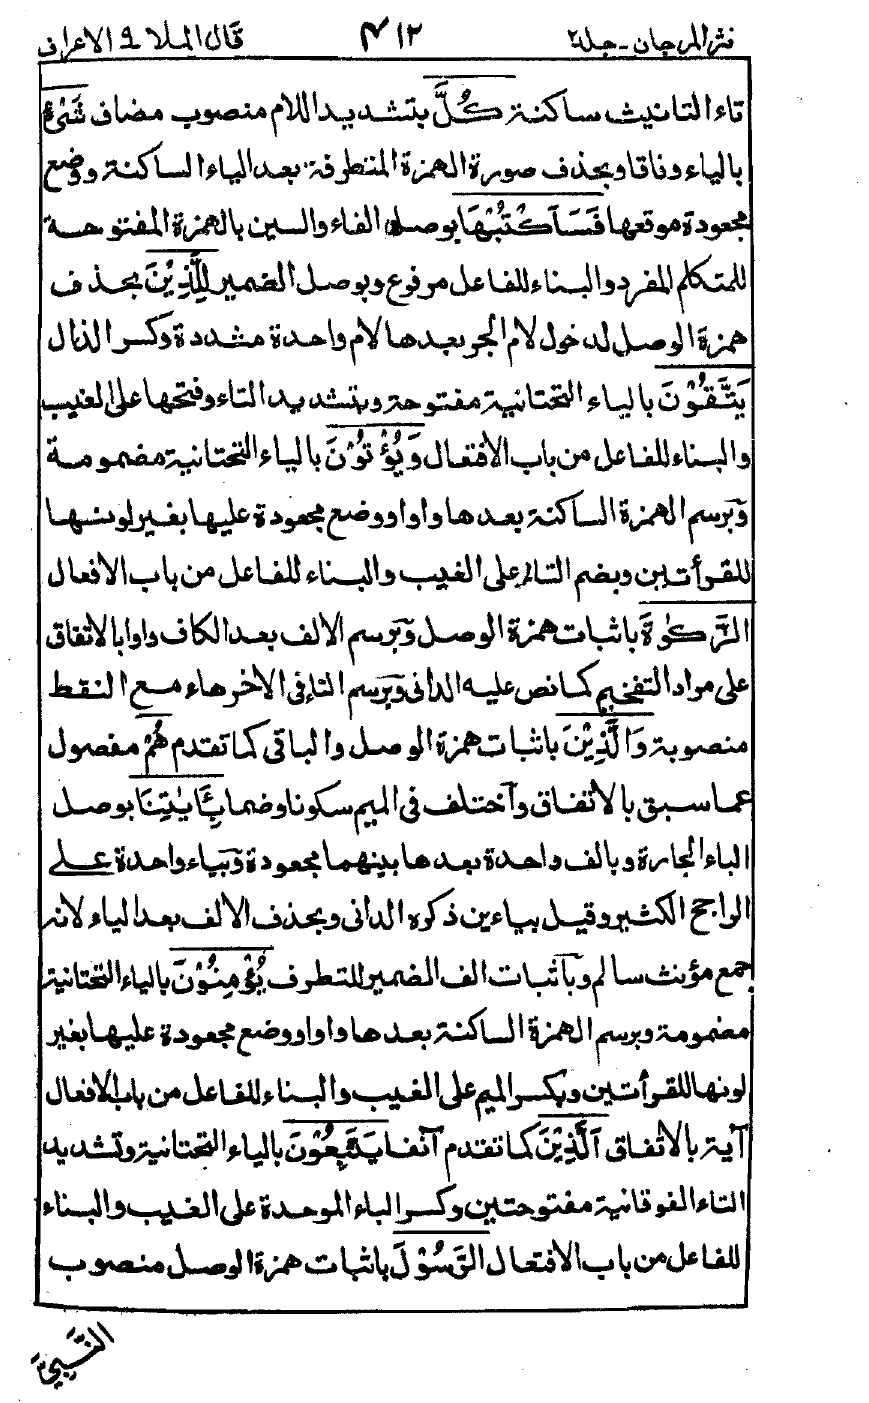 نثر المرجان - جلد٢
٤١٢
قال الملا ٩ الاعراف
تاء التانيث ساكنة كُلَّ بتشديد اللام منصوب مضاف شَيْءٍ
بالياء وفاقا وبحذف صورة الهمزة المتطرفة بعد الياء الساكنة ووضع
مجعودة موقعها فَسَاَكْتُبُهَا بوصل الفاء والسين بالهمزة المفتوحة
للمتكلم المفرد والبناء للفاعل مرفوع وبوصل الضمير لِلَّذِيْنَ بحذف
همزة الوصل لدخول لام الجر بعدها لام واحدة مشددة وكسر الذال
يَتَّقُوْنَ بالياء التحتانية مفتوحة وبتشديد التاء وفتحها على الغيب
والبناء للفاعل من باب الافتعال وَيُؤْتُوْنَ بالياء التحتانية مضمومة
وبرسم الهمزة الساكنة بعدها واوا ووضع مجعودة عليها بغير لونها
للقرأتين وبضم التاء على الغيب والبناء للفاعل من باب الافعال
الزَّكٰوةَ باثبات همزة الوصل وبرسم الالف بعد الكاف واوا بالاتفاق
على مراد التفخيم كما نص عليه الدانى وبرسم التاء فى الاخر هاء مع النقط
منصوبة وَالَّذِيْنَ باثبات همزة الوصل والباقى كما تقدم هُمْ مفصول
عما سبق بالاتفاق واختلف فى الميم سكونا وضما بِاٰيٰتِنَا بوصل
الباء الجارة وبالف واحدة بعدها بينهما مجعودة وبياء واحدة على
الراجح الكثير وقيل بياءين ذكره الدانى وبحذف الالف بعد الياء لانه
جمع مؤنث سالم وباثبات الف الضمير للتطرف يُؤْمِنُوْنَ بالياء التحتانية
مضمومة وبرسم الهمزة الساكنة بعدها واوا ووضع مجعودة عليها بغير
لونها للقرأتين وبكسر الميم على الغيب والبناء للفاعل من باب الافعال
آية بالاتفاق اَلَّذِيْنَ كما تقدم آنفا يَتَّبِعُوْنَ بالياء التحتانية وتشديد
التاء الفوقانية مفتوحتين وكسر الباء الموحدة على الغيب والبناء
للفاعل من باب الافتعال الرَّسُوْلَ باثبات همزة الوصل منصوب
النَّبِيَّ